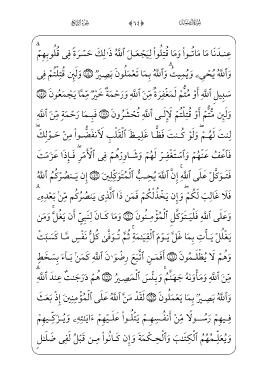 سُورَةُ آلِ عِمْرَانَ
(٦٤)
الجُزْءُ الرَّابِعُ
عِندَنَا مَا مَاتُوا۟ وَمَا قُتِلُوا۟ لِيَجْعَلَ ٱللَّهُ ذَٰلِكَ حَسْرَةً فِى قُلُوبِهِمْ
وَٱللَّهُ يُحْىِۦ وَيُمِيتُ وَٱللَّهُ بِمَا تَعْمَلُونَ بَصِيرٌ ١٥٦ وَلَئِن قُتِلْتُمْ فِى
سَبِيلِ ٱللَّهِ أَوْ مُتُّمْ لَمَغْفِرَةٌ مِّنَ ٱللَّهِ وَرَحْمَةٌ خَيْرٌ مِّمَّا يَجْمَعُونَ ١٥٧
وَلَئِن مُّتُّمْ أَوْ قُتِلْتُمْ لَإِلَى ٱللَّهِ تُحْشَرُونَ ١٥٨ فَبِمَا رَحْمَةٍ مِّنَ ٱللَّهِ
لِنتَ لَهُمْ وَلَوْ كُنتَ فَظًّا غَلِيظَ ٱلْقَلْبِ لَٱنفَضُّوا۟ مِنْ حَوْلِكَ
فَٱعْفُ عَنْهُمْ وَٱسْتَغْفِرْ لَهُمْ وَشَاوِرْهُمْ فِى ٱلْأَمْرِ فَإِذَا عَزَمْتَ
فَتَوَكَّلْ عَلَى ٱللَّهِ إِنَّ ٱللَّهَ يُحِبُّ ٱلْمُتَوَكِّلِينَ ١٥٩ إِن يَنصُرْكُمُ ٱللَّهُ
فَلَا غَالِبَ لَكُمْ وَإِن يَخْذُلْكُمْ فَمَن ذَا ٱلَّذِى يَنصُرُكُم مِّنۢ بَعْدِهِۦ
وَعَلَى ٱللَّهِ فَلْيَتَوَكَّلِ ٱلْمُؤْمِنُونَ ١٦٠ وَمَا كَانَ لِنَبِىٍّ أَن يَغُلَّ وَمَن
يَغْلُلْ يَأْتِ بِمَا غَلَّ يَوْمَ ٱلْقِيَٰمَةِ ثُمَّ تُوَفَّىٰ كُلُّ نَفْسٍ مَّا كَسَبَتْ
وَهُمْ لَا يُظْلَمُونَ ١٦١ أَفَمَنِ ٱتَّبَعَ رِضْوَٰنَ ٱللَّهِ كَمَنۢ بَآءَ بِسَخَطٍ
مِّنَ ٱللَّهِ وَمَأْوَىٰهُ جَهَنَّمُ وَبِئْسَ ٱلْمَصِيرُ ١٦٢ هُمْ دَرَجَٰتٌ عِندَ ٱللَّهِ
وَٱللَّهُ بَصِيرٌۢ بِمَا يَعْمَلُونَ ١٦٣ لَقَدْ مَنَّ ٱللَّهُ عَلَى ٱلْمُؤْمِنِينَ إِذْ بَعَثَ
فِيهِمْ رَسُولًا مِّنْ أَنفُسِهِمْ يَتْلُوا۟ عَلَيْهِمْ ءَايَٰتِهِۦ وَيُزَكِّيهِمْ
وَيُعَلِّمُهُمُ ٱلْكِتَٰبَ وَٱلْحِكْمَةَ وَإِن كَانُوا۟ مِن قَبْلُ لَفِى ضَلَٰلٍ